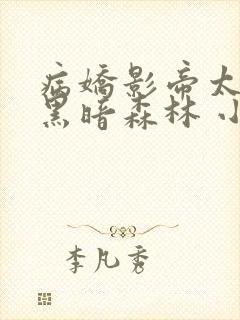 病嬌影帝太
黑暗森林 小
李凡秀